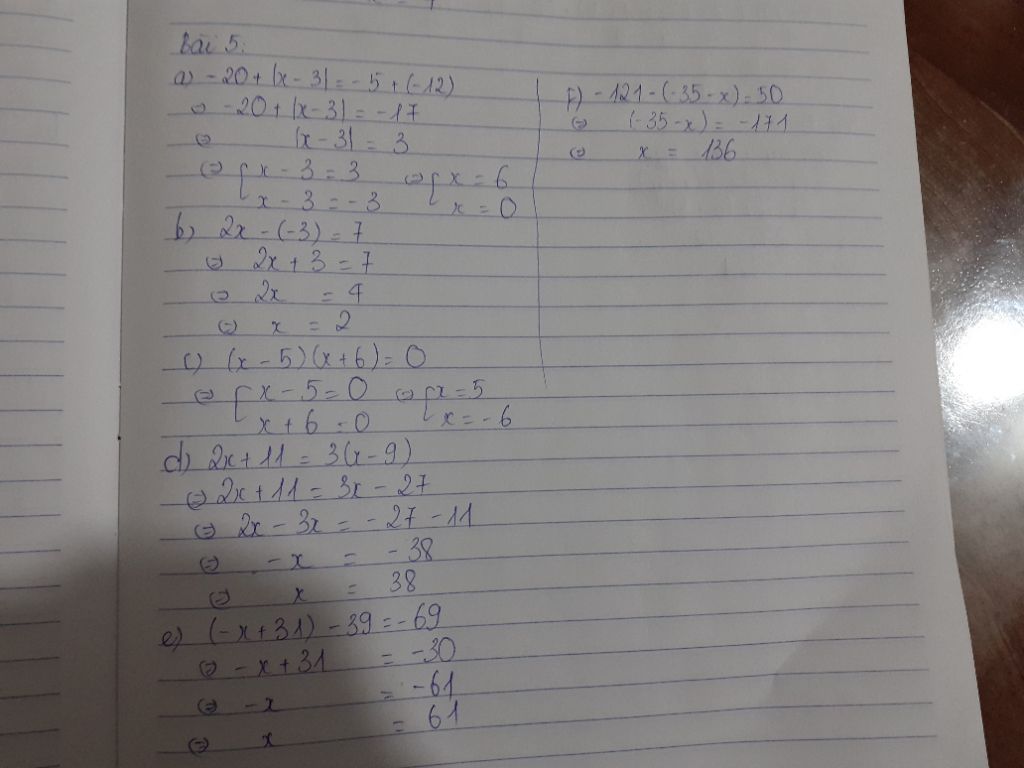 Bài 5:
a) -20 + |x - 3| = -5 + (-12)
⇔ -20 + |x - 3| = -17
⇔ |x - 3| = 3
⇔ { x - 3 = 3 ⇔ { x = 6
x - 3 = -3 x = 0
b) 2x - (-3) = 7
⇔ 2x + 3 = 7
⇔ 2x = 4
⇔ x = 2
c) (x - 5)(x + 6) = 0
⇔ { x - 5 = 0 ⇔ { x = 5
x + 6 = 0 x = -6
d) 2x + 11 = 3(x - 9)
⇔ 2x + 11 = 3x - 27
⇔ 2x - 3x = -27 - 11
⇔ -x = -38
⇔ x = 38
e) (-x + 31) - 39 = -69
⇔ -x + 31 = -30
⇔ -x = -61
⇔ x = 61
f) -121 - (-35 - x) = 50
⇔ (-35 - x) = -171
⇔ x = 136